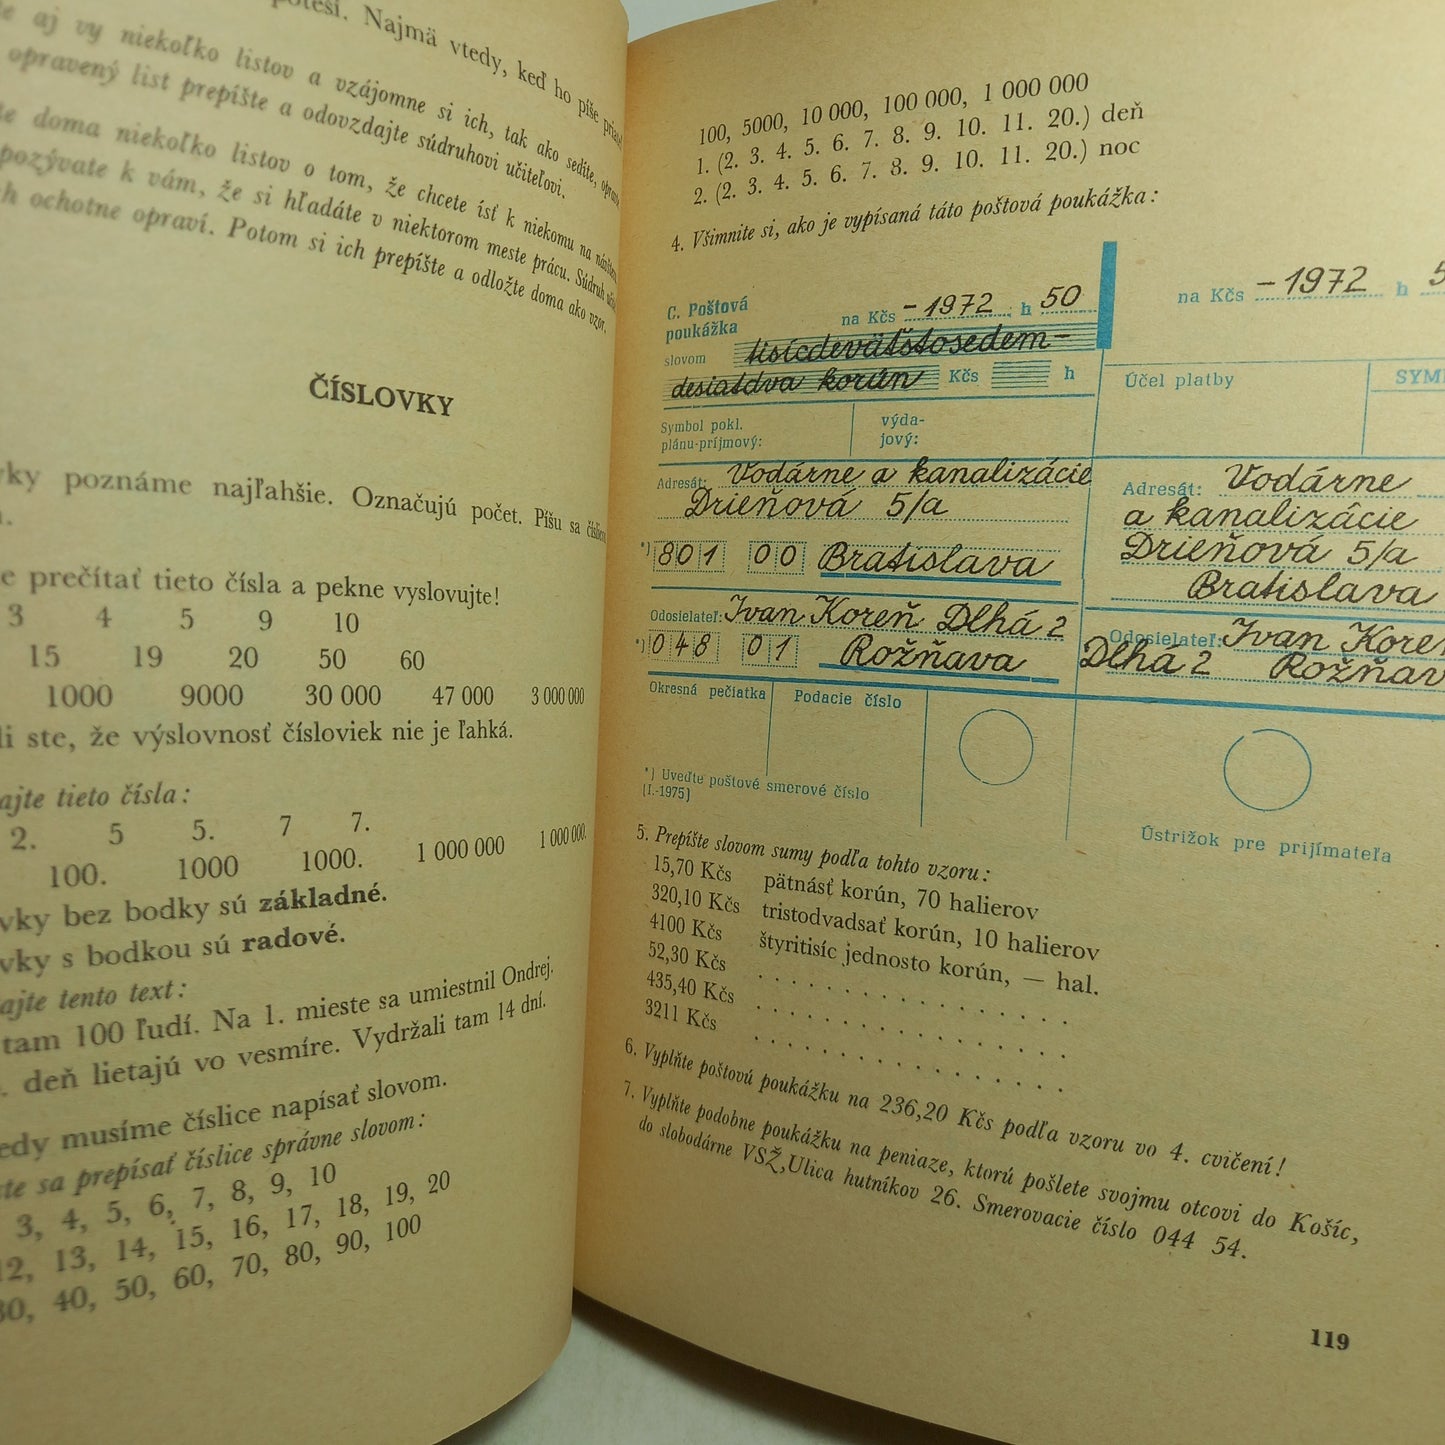 poteší. Najmä vtedy, keď ho píše
aj vy niekoľko listov a vzájomne si ich, tak ako sedíte,
opravený list prepíšte a odovzdajte súdruhovi učiteľovi.
doma niekoľko listov o tom, že chcete ísť k niekomu na
pozývate k vám, že si hľadáte v niektorom meste prácu. Súdruh
ochotne opraví. Potom si ich prepíšte a odložte doma ako vzor.
ČÍSLOVKY
vky poznáme najľahšie. Označujú počet. Píšu sa
e prečítať tieto čísla a pekne vyslovujte!
3 4 5 9 10
15 19 20 50 60
1000 9000 30 000 47 000 3 000 000
li ste, že výslovnosť čísloviek nie je ľahká.
ajte tieto čísla:
2. 5 5. 7 7.
100. 1000 1000. 1 000 000 1 000 000.
vky bez bodky sú základné.
vky s bodkou sú radové.
ajte tento text:
tam 100 ľudí. Na 1. mieste sa umiestnil Ondrej.
. deň lietajú vo vesmíre. Vydržali tam 14 dní.
edy musíme číslice napísať slovom.
te sa prepísať číslice správne slovom:
3, 4, 5, 6, 7, 8, 9, 10
12, 13, 14, 15, 16, 17, 18, 19, 20
30, 40, 50, 60, 70, 80, 90, 100
100, 5000, 10 000, 100 000, 1 000 000
1. (2. 3. 4. 5. 6. 7. 8. 9. 10. 11. 20.) deň
2. (2. 3. 4. 5. 6. 7. 8. 9. 10. 11. 20.) noc
4. Všimnite si, ako je vypísaná táto poštová poukážka:
C. Poštová
poukážka
na Kčs –1972 h 50
slovom tisícdeväťstosedem-
desiatdva korún Kčs h
Symbol pokl.
plánu-príjmový:
výda-
jový:
Adresát: Vodárne a kanalizácie
Drieňová 5/a
*) 801 00 Bratislava
Odosielateľ: Ivan Koreň Dlhá 2
*) 048 01 Rožňava
Okresná pečiatka
Podacie číslo
*) Uveďte poštové smerové číslo
(I.-1975)
na Kčs –1972 h 5
Účel platby
SYM
Adresát: Vodárne
a kanalizácie
Drieňová 5/a
Bratislava
Odosielateľ: Ivan Kore
Dlhá 2 Rožňav
Ústrižok pre prijímateľa
5. Prepíšte slovom sumy podľa tohto vzoru:
15,70 Kčs pätnásť korún, 70 halierov
320,10 Kčs tristodvadsať korún, 10 halierov
4100 Kčs štyritisíc jednosto korún, — hal.
52,30 Kčs . . . . . . . . . . . . . .
435,40 Kčs . . . . . . . . . . . . . .
3211 Kčs . . . . . . . . . . . . . .
6. Vyplňte poštovú poukážku na 236,20 Kčs podľa vzoru vo 4. cvičení!
7. Vyplňte podobne poukážku na peniaze, ktorú pošlete svojmu otcovi do Košíc,
do slobodárne VSŽ,Ulica hutníkov 26. Smerovacie číslo 044 54.
119